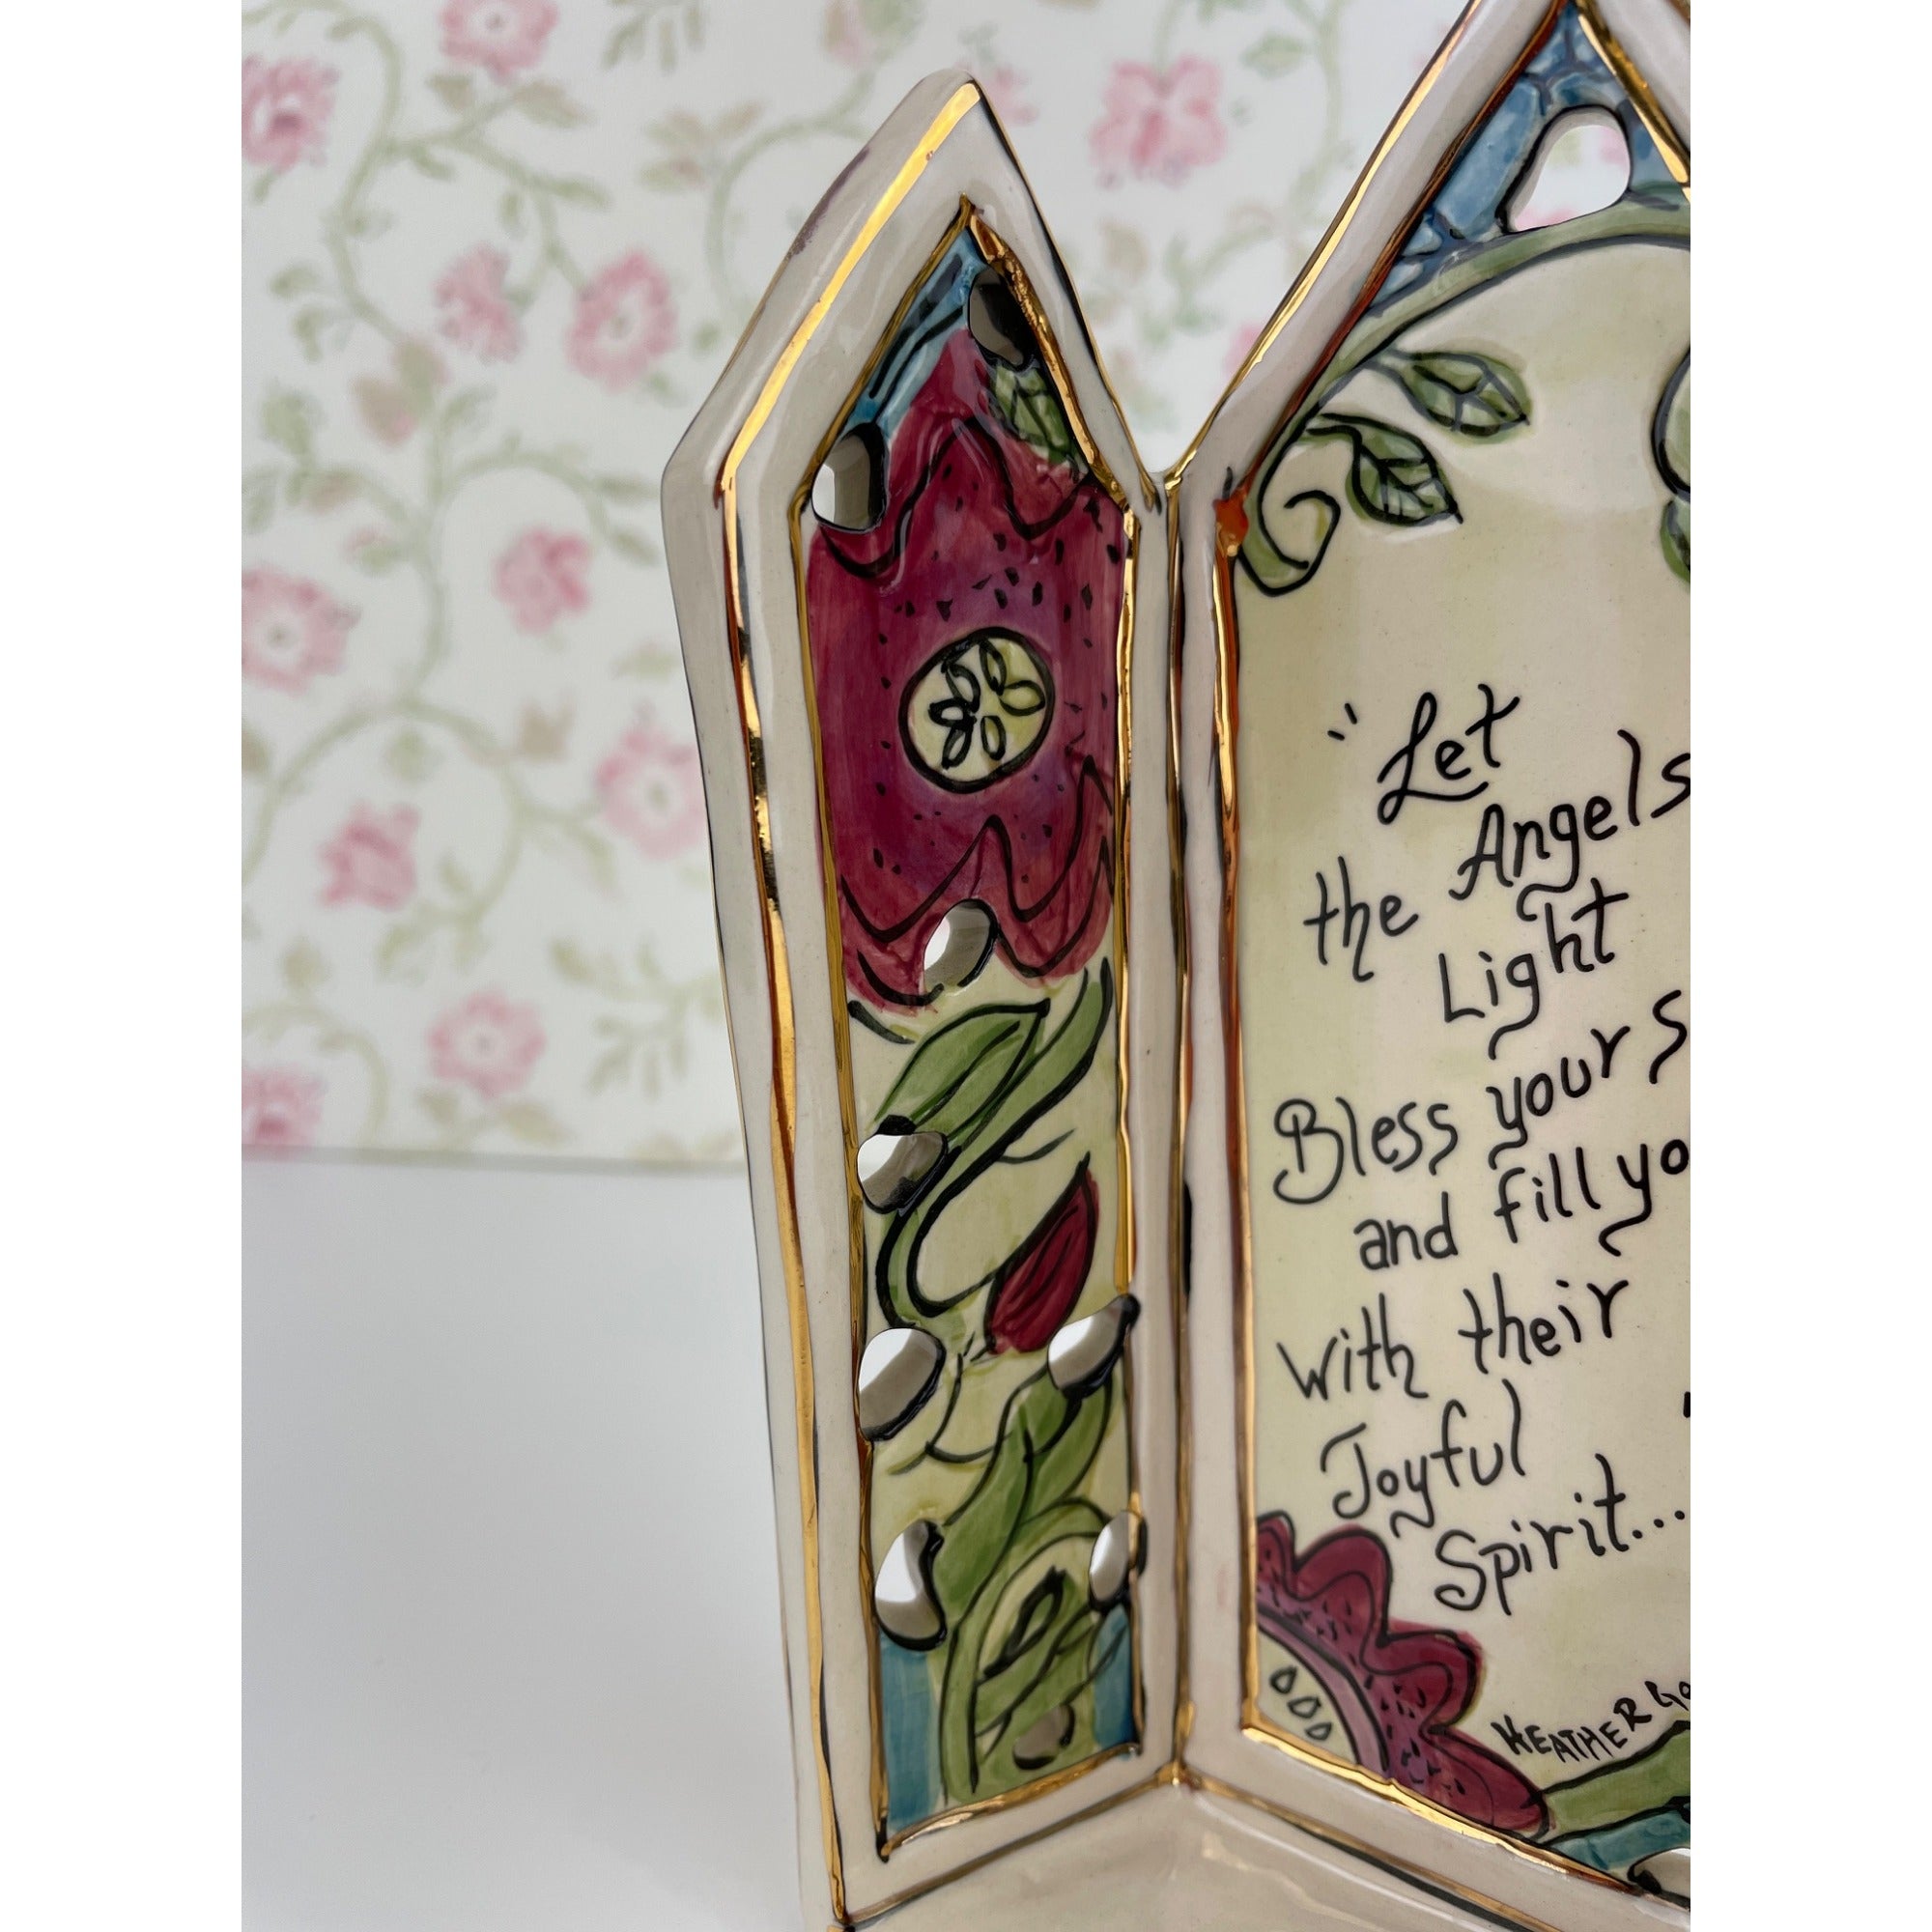 "Let
the Angels
Light
Bless yours
and fill yo
with their
Joyful
Spirit... "
HEATHER GO